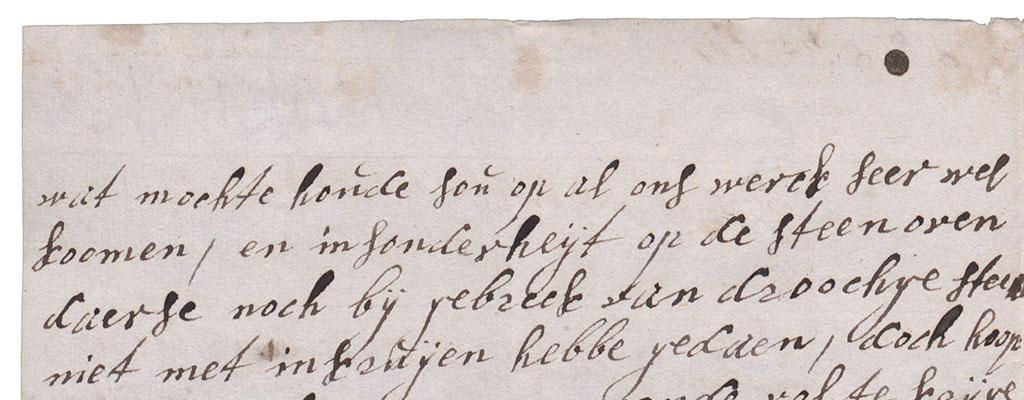 wat mochte houde sou op al ons werck seer wel
koomen, en insonderheijt op de steen oven
daerse noch bij gebreck van droochge steen
niet met inkruijen hebbe gedaen, doch hoop